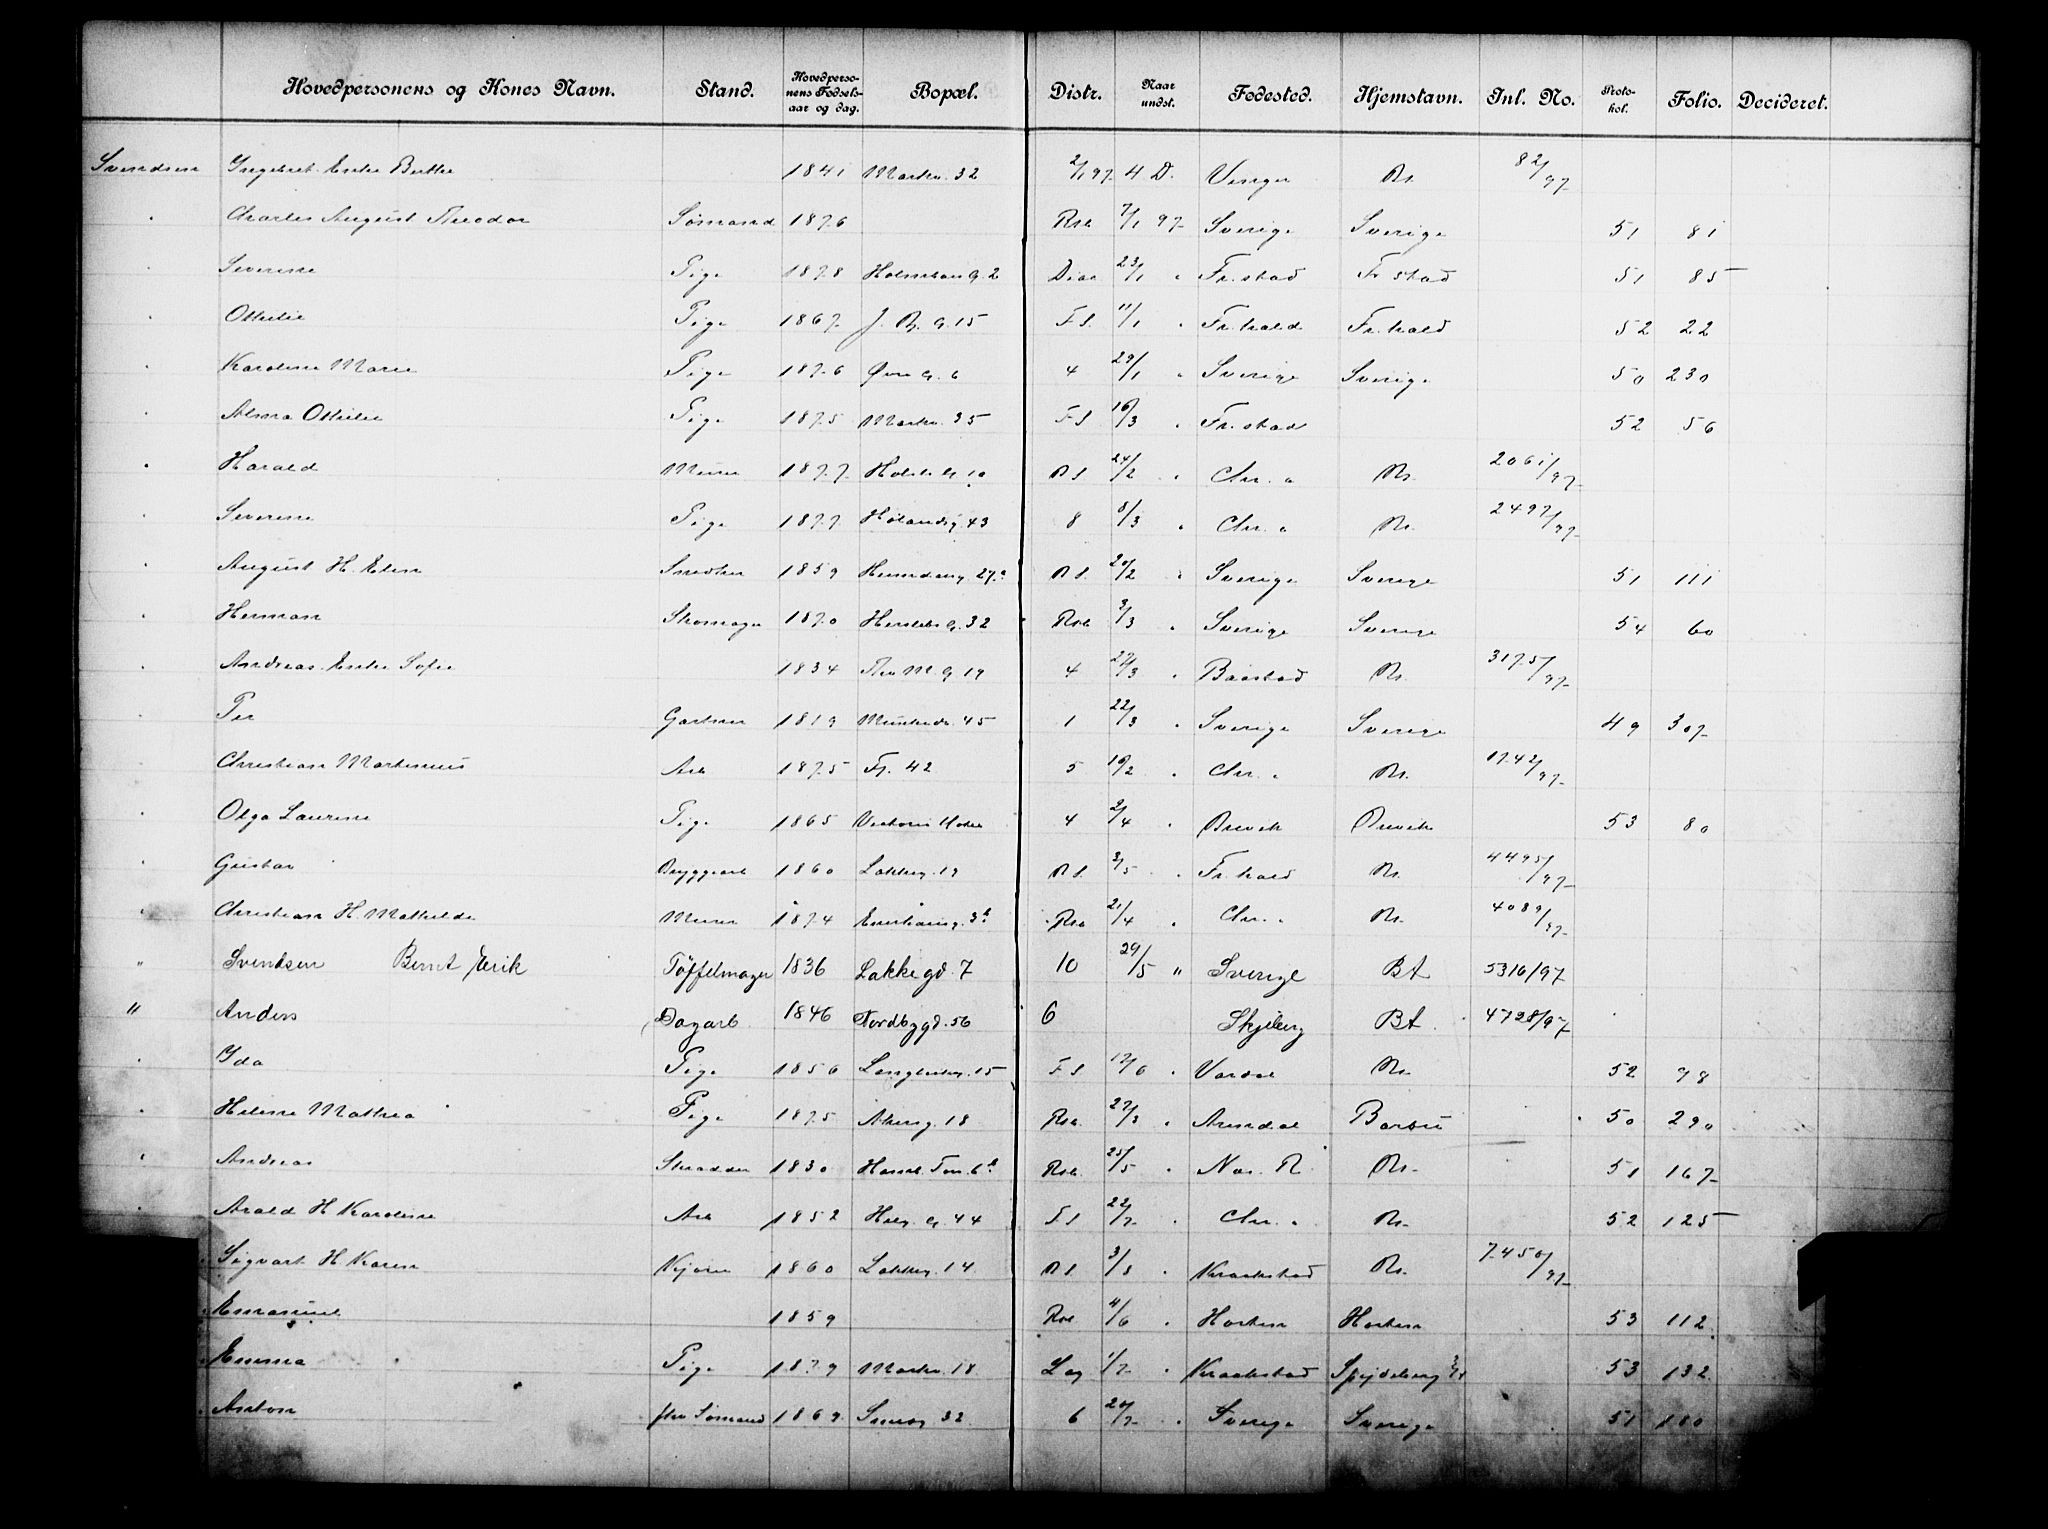 Hovedpersonens og Kones Navn. Stand. Hovedpersonens Fødselsaar og dag. Bopæl. Distr. Naar undst. Fødested. Hjemstavn. Inl. No. Protokol. Folio. Decideret.
Svendsen Ingebret Enke Berthe 1841 Markv. 32 2/1 97 4 D. Vinger Kr. 82/97
" Charles August Theodor Sømand 1876 7/1 97 Sverige Sverige 51 81
" Severine Pige 1878 23/1 " Fr.stad Fr stad 51 85
" Ottilie Pige 1867 J. B. G. 15 F S. 11/1 " Fr.hald Fr.hald 52 22
" Karoline Marie Pige 1876 Øvre G. 6 4 29/1 " Sverige Sverige 50 230
" Alma Ottilie Pige 1875 Markv. 35 F S. 16/3 " Fr.stad 52 56
" Harald Murer 1877 Holst. G 10 24/2 " Chr. a Kr. 2061/97
" Severine Pige 1877 43 8 8/3 " Chr. a Kr. 2497/97
" August H. Elen Snedker 1859 27 20/2 " Sverige Sverige 51 111
" Herman Skomager 1870 Herslebs G. 32 3/3 " Sverige Sverige 54 60
" Andreas Enke Sofie 1834 Thv M G 19 4 27/3 " Baastad Kr. 3175/97
" Per Gartner 1819 Munkeda. 45 1 22/3 " Sverige Sverige 49 307
" Christian Martinius Arb 1875 Fr. 42 5 10/2 " Chr. a Kr. 1742/97
" Olga Laurine Pige 1865 Victoria Hotel 4 2/4 " Brevik Brevik 53 80
" Gustav Bryggearb 1860 Lakkeg. 19 3/5 " Fr.hald Kr. 4495/97
" Christian H. Mathilde Murer 1874 3 21/4 " Chr. a Kr. 4089/97
" Svendsen Bernt Erik Töffelmager 1836 Lakkegd. 7 10 29/5 " Sverige BA 5316/97
" Anders Dagarb 1846 Nordbygd. 56 6 Skjeberg BA. 4728/97
" Ida Pige 1856 15 F S 12/6 " Vardal Kr. 52 98
" Helene Mathea Pige 1875 Akersg. 18 27/3 " Arendal Barbu 50 290
" Andreas Skrædder 1830 25/5 " Nas. R. Kr. 51 167
" Arald H Karoline Arb 1852 Helg. G 44 F S 22/7 " Chr. a Kr. 52 125
Sigvart H. Karen Kjører 1860 Lakkeg. 14 3/8 " Kraakstad Kr. 7450/97
Emanuel 1859 4/6 " Horten Horten 53 112
Emma Pige 1879 Markv. 18 Lag 1/7 " Kraakstad Spydeberg 53 132
Anton fhv Sømand 1869 Smeg 32 6 20/7 " Sverige Sverige 51 180